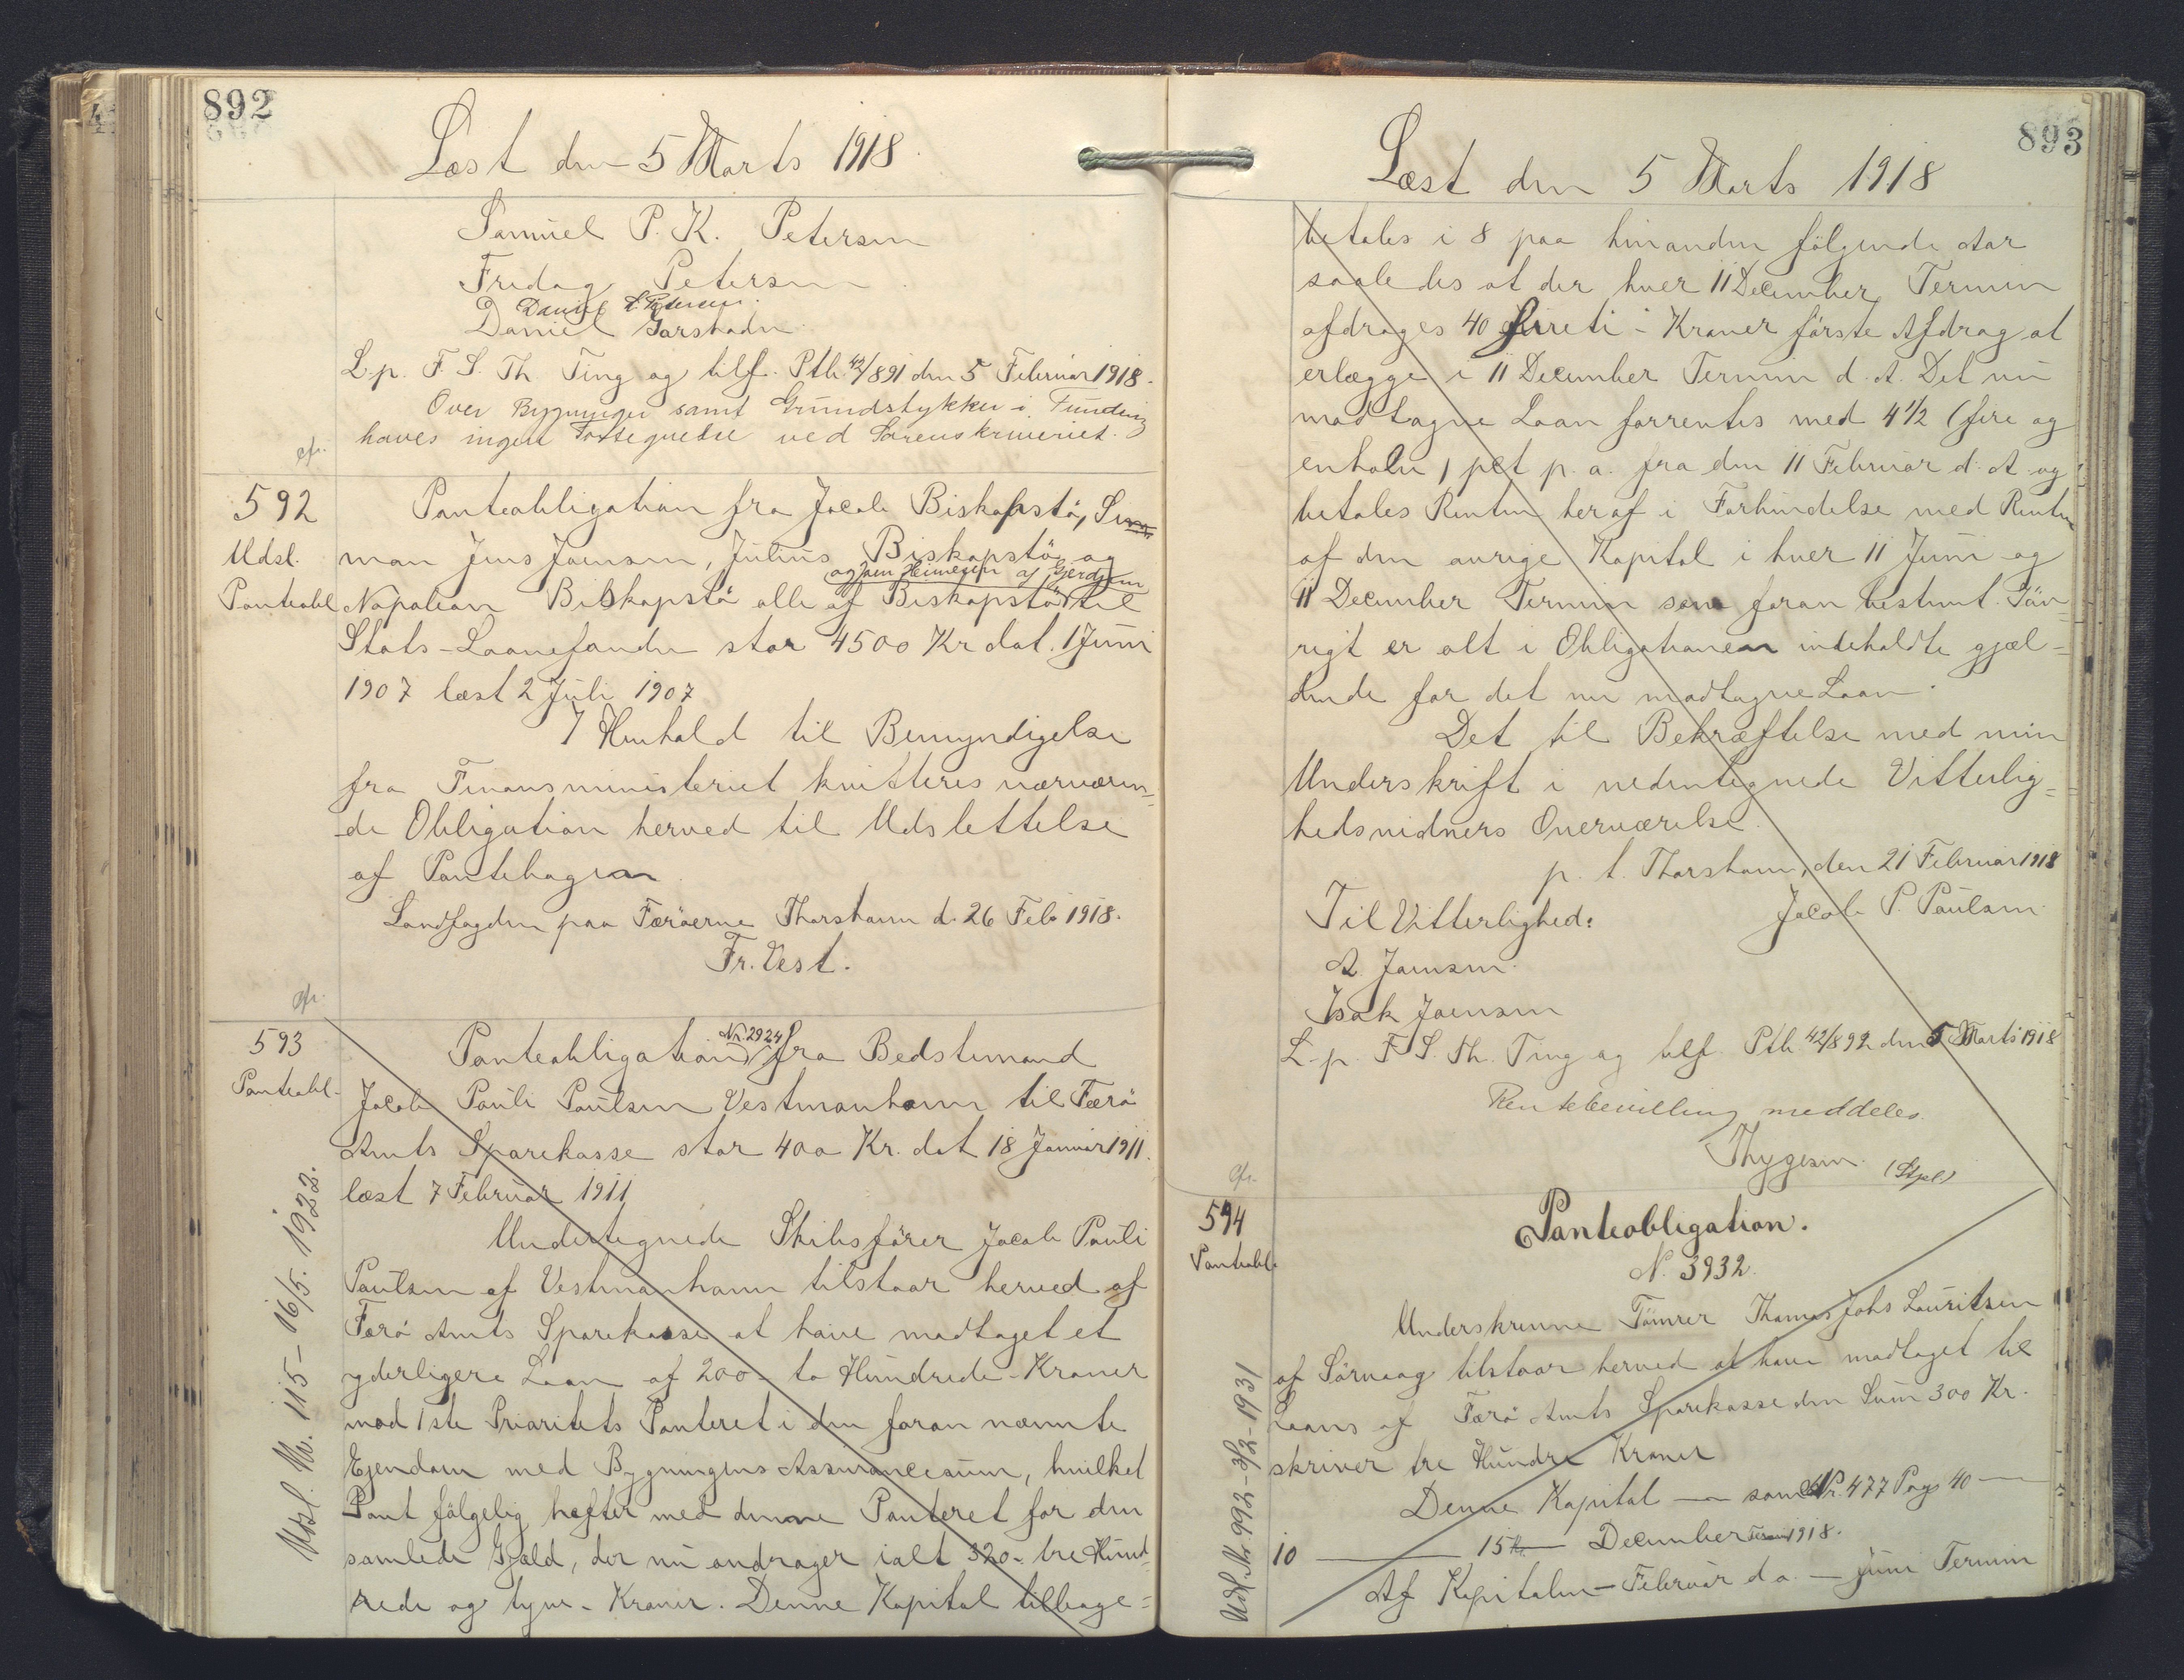 892
Læst den 5 Marts 1918.
Samuel P. K. Petersen
Fredag Petersen
Daniel S. Petersen.
Daniel Garshadn
L. p. F. S. Th. Ting og tilf. Ptb. 42/891 den 5 Februar 1918.
Over Bygninger samt Grundstykker i Funding
haves ingen Fortegnelse ved Sorenskriveriet.
cfr.
592
Udsl.
Panteobl
Panteobligation fra Jacob Biskopstö, Sim
man Jens Joensen, Julius Biskopstö og
og Joen Heinesen af Gjerdum
Napoleon Biskopstö alle af Biskopstö til
Stats-Laanefonden stor 4500 Kr dat. 1 Juni
1907 læst 2 Juli 1907
I Henhold til Bemyndigelse
fra Finansministeriet kvitteres nærværen-
de Obligation herved til Udslettelse
af Pantebogen
Landfogden paa Færöerne Thorshavn d. 26 Feb 1918.
Fr. Vest.
cfr.
593
Panteobl.
Udsl. Nr. 115 - 16/5. 1922.
Panteobligation Nr. 2924 fra Bedstemand
Jacob Pauli Paulsen Vestmanhavn til Færö
Amts Sparekasse stor 400 Kr. dat 18 Januar 1911.
læst 7 Februar 1911
Undertegnede Skibsförer Jacob Pauli
Paulsen af Vestmanhavn tilstaar herved af
Færö Amts Sparekasse at have modtaget et
yderligere Laan af 200 - to Hundrede - Kroner
mod 1ste Prioritets Panteret i den foran nævnte
Ejendom med Bygningens Assurancesum, hvilket
Pant fölgelig hefter med denne Panteret for den
samlede Gjæld, der nu andrager ialt 320 - tre Hund-
rede og tyve - Kroner. Denne Kapital tilbage=
893
Læst den 5 Marts 1918
betales i 8 paa hinanden fölgende Aar
saaledes at der hver 11 December Termin
afdrages 40 firreti - Kroner förste Afdrag at
erlægge i 11 December Termin d. A. Det nu
modtagne Laan forrentes med 4 1/2 (fire og
en halv) pct p. a. fra den 11 Februar d. A og
betales Renten heraf i Forbindelse med Renten
af den övrige Kapital i hver 11 Juni og
11 December Termin som foran bestemt. Iöv-
rigt er alt i Obligationen indeholdte gjæl=
dende for det nu modtagne Laan.
Det til Bekræftelse med min
Underskrift i nedentegnede Vitterlig=
hedsvidners Overværelse.
p. t. Thorshavn, den 21 Februar 1918
Til Vitterlighed:
Jacob P. Paulsen.
A. Joensen.
Isak Joensen
L. p. F. S. Th. Ting og tilf. Ptb 42/892 den 5 Marts 1918
Rentebevilling meddeles.
Thygesen. (Stpl)
cfr.
594
Panteobl.
Udsl. Nr 992 - 3/2 - 1931
Panteobligation.
N. 3932.
Underskrevne Tömrer Thomas Johs Lauritsen
af Sörvaag tilstaar herved at have modtaget til
Laans af Færö Amts Sparekasse den Sum 300 Kr.
skriver tre Hundre Kroner
Denne Kapital — som Nr. 477 Pag 40 —
10 — 15 Kr. — December Termin 1918.
Af Kapitalen - Februar d. a. — Juni Termin